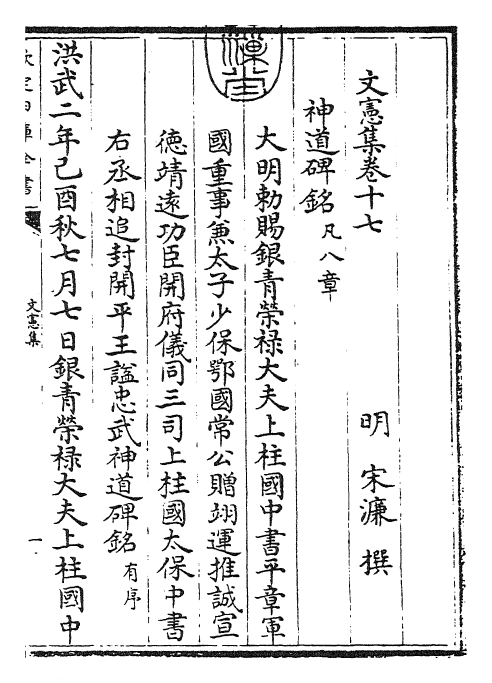 文憲集卷十七
明 宋濂 撰
神道碑銘凡八章
大明勅賜銀青榮祿大夫上柱國中書平章軍
國重事兼太子少保鄂國常公贈翊運推誠宣
德靖遠功臣開府儀同三司上柱國太保中書
右丞相追封開平王諡忠武神道碑銘有序
洪武二年己酉秋七月七日銀青榮祿大夫上柱國中
欽定四庫全書
文憲集
一